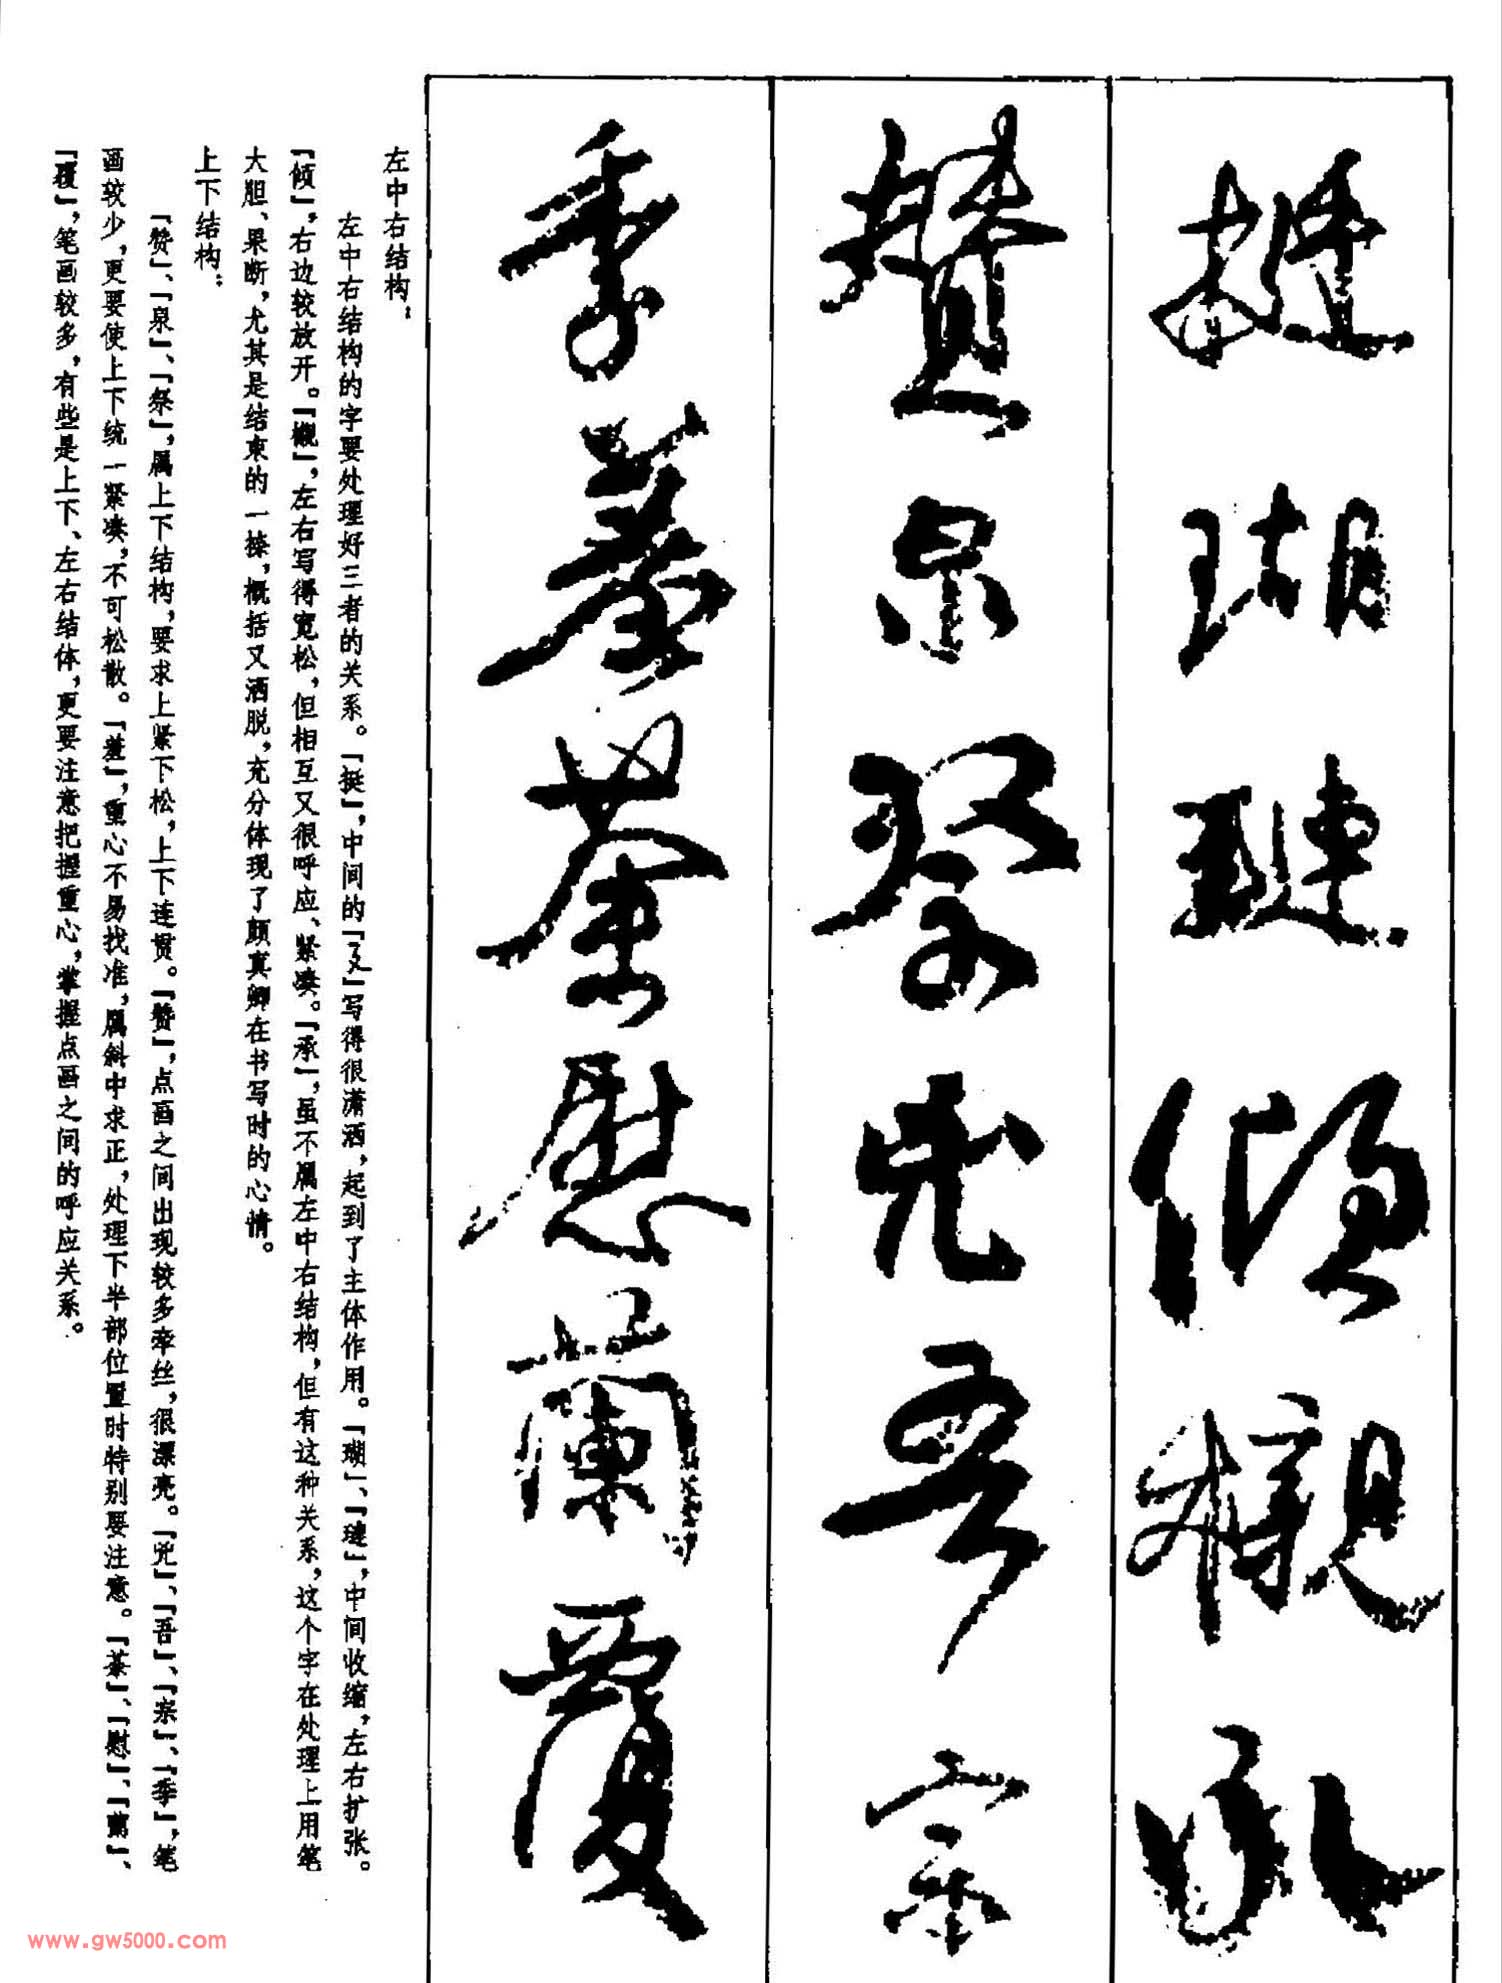 挺瑚琏倾榇承
赞泉祭兕吾宗
季羞荼慰蘭覆
左中右结构：
左中右结构的字要处理好三者的关系。「挺」，中间的「廴」写得很潇洒，起到了主体作用。「瑚」、「琏」，中间收缩，左右扩张。
「倾」，右边较放开。「榇」，左右写得宽松，但相互又很呼应、紧凑。「承」，虽不属左中右结构，但有这种关系，这个字在处理上用笔
大胆、果断，尤其是结束的一捺，概括又洒脱，充分体现了颜真卿在书写时的心情。
上下结构：
「赞」、「泉」、「祭」，属上下结构，要求上紧下松，上下连贯。「赞」，点画之间出现较多牵丝，很漂亮。「兕」、「吾」、「宗」、「季」，笔
画较少，更要使上下统一紧凑，不可松散。「羞」，重心不易找准，属斜中求正，处理下半部位置时特别要注意。「荼」、「慰」、「蘭」、
「覆」，笔画较多，有些是上下、左右结体，更要注意把握重心，掌握点画之间的呼应关系。
www.gw5000.com